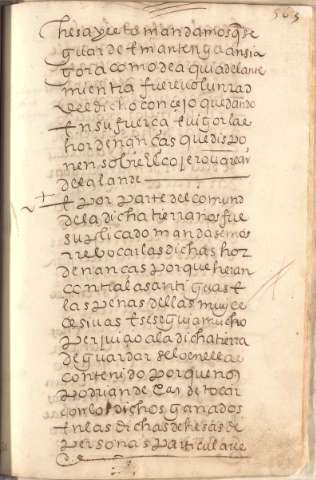 505
thesayerto mandamos q̃ se
guarde e mantenga ansi a
gora como de aqui adelante
mientra fuere voluntad
del dicho concejo quedando
en su fuerca e vigor las
hordenancas que dispo
nen sobre el cojer o varear
de la lande
e por parte del comund
de la dicha tierra nos fue
suplicado mandasemos
rrebocar las dichas hor
denancas porque heran
contra las antiguas e
las penas dellas muy ce
cesivas e se seguia mucho
perjuiçio a la dicha tierra
de guardar se lo en ellas
contenido porque no
podrian dexar de tocar
con los dichos ganados
en las dichas dehesas de
personas particulares